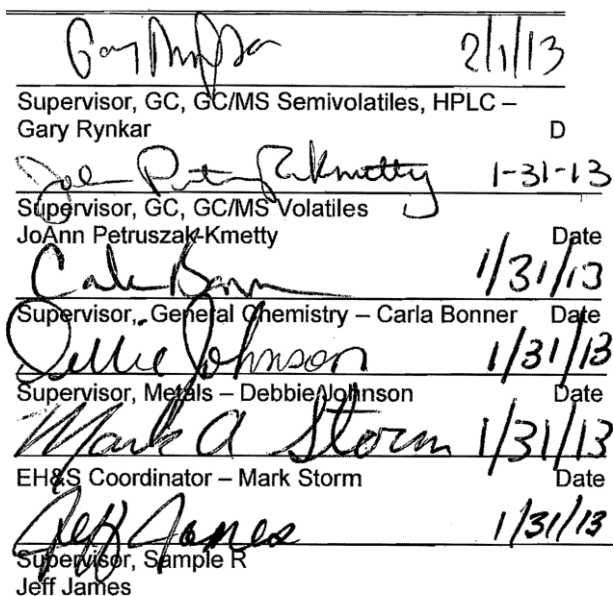 2/1/13
Supervisor, GC, GC/MS Semivolatiles, HPLC –
Gary Rynkar D
1-31-13
Supervisor, GC, GC/MS Volatiles
JoAnn Petruszak-Kmetty Date
1/31/13
Supervisor, General Chemistry – Carla Bonner Date
Debbie Johnson 1/31/13
Supervisor, Metals – Debbie Johnson Date
Mark A Storm 1/31/13
EH&S Coordinator – Mark Storm Date
Jeff James 1/31/13
Supervisor, Sample R
Jeff James